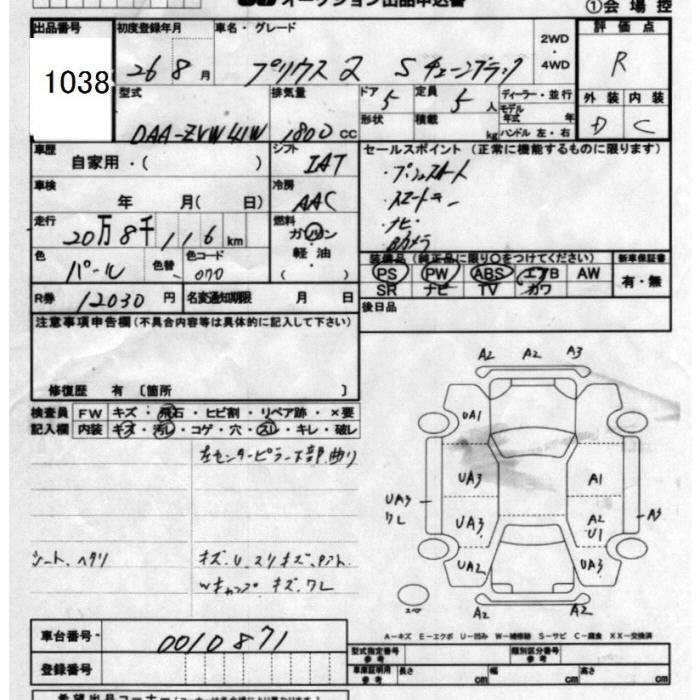 オークション出品申込書
①会場控
出品番号 初度登録年月 車名・グレード 評価点
1038 26 8月 プリウスα Sチューンブラック 2WD・4WD R
型式 排気量 ドア 5 定員 5人 ディーラー・並行 外装 内装
DAA-ZVW41W 1800 CC 形状 積載 kg モデル年式 年 D C
ハンドル 左・右
車歴 シフト セールスポイント(正常に機能するものに限ります)
自家用・( ) IAT ・プッシュスタート
車検 冷房 ・スマートキー
年 月( 日) AAC ・ナビ・
走行 燃料 Bカメラ
20万8千116km ガソリン
軽油
( )
色 色替 色コード 装備品(純正品に限り○をつけてください) 新車保証書
パール 070 PS PW ABS エアB AW 有・無
SR ナビ TV カワ
R券 12030円 名変通知期限 月 日 後日品
注意事項申告欄(不具合内容等は具体的に記入して下さい)
修復歴 有〔箇所 〕
検査員 FW キズ・飛石・ヒビ割・リペア跡・×要
記入欄 内装 キズ・汚れ・コゲ・穴・スレ・キレ・破レ
左センターピラー下部曲り
シート、ヘタリ キズ、U、スリキズ、
キズ、ワレ
A2 A2 A3
UA1
UA3 A1
UA3 ワレ UA3 A2 U1 A3
UA2 UA3
スペア A2 A2
A−キズ E−エクボ U−凹み W−補修跡 S−サビ C−腐食 XX−交換済
車台番号 0010871 型式指定番号 参考 類別区分番号 参考
登録番号 車庫証明用 参考 長さ cm 幅 cm 高さ cm
希望出品コーナー